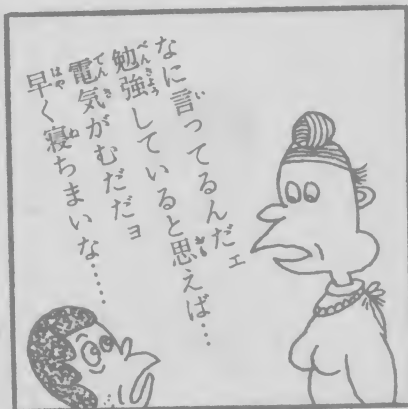 なに言ってるんだェ
勉強していると思えば…
電気がむだだョ
早く寝ちまいな……